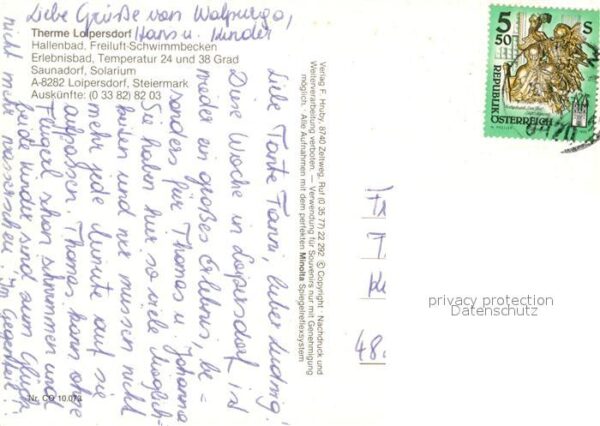 Liebe Grüße von Walpurga,
Hans u. Kinder
Therme Loipersdorf
Hallenbad, Freiluft-Schwimmbecken
Erlebnisbad, Temperatur 24 und 38 Grad
Saunadorf, Solarium
A-8282 Loipersdorf, Steiermark
Auskünfte: (0 33 82) 82 03
Liebe Tante Fanni, lieber Ludwig!
Diese Woche in Loipersdorf ist
wieder ein großes Erlebnis, be-
sonders für Thomas u. Johanna
Sie haben hier so viele Möglich-
keiten und wir müssen nicht
mehr jede Minute auf sie
aufpassen. Thomas kann ohne
Flügerl schon schwimmen und
beide Kinder sind zum Glück
nicht mehr wasserscheu! Im Gegenteil!
Nr. CO 10.073
Verlag F. Hruby, 8740 Zeltweg, Ruf (0 35 77) 22 292 © Copyright · Nachdruck und
Weiterverarbeitung verboten. — Verwendung für Souvenirs nur mit Genehmigung
möglich. · Alle Aufnahmen mit dem perfekten Minolta Spiegelreflexsystem
5 50 S
REPUBLIK
ÖSTERREICH
48.
privacy protection
Datenschutz